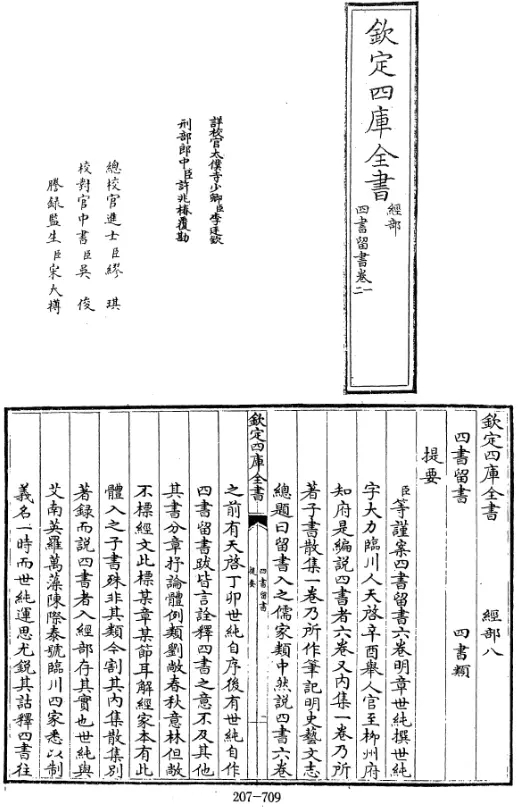 欽定四庫全書
經部
四書留書卷一
二
詳校官太僕寺少卿臣李廷欽
刑部郎中臣許兆椿覆勘
總校官進士臣繆琪
校對官中書臣吳俊
謄錄監生臣宋大樽
欽定四庫全書 經部八
四書留書 四書類
提要
臣等謹案四書留書六卷明章世純撰世純
字大力臨川人天啓辛酉舉人官至柳州府
知府是編說四書者六卷又内集一卷乃所
著子書散集一卷乃所作筆記明史藝文志
總題曰留書入之儒家類中然說四書六卷
欽定四庫全書
四書留書
提要
一
之前有天啓丁卯世純自序後有世純自作
四書留書跋皆言詮釋四書之意不及其他
其書分章抒論體例類劉敞春秋意林但敞
不標經文此標某章某節耳解經家本有此
體入之子書殊非其類今割其内集散集別
著錄而說四書者入經部存其實也世純與
艾南英羅萬藻陳際泰號臨川四家悉以制
義名一時而世純運思尤銳其詁釋四書往
207-709